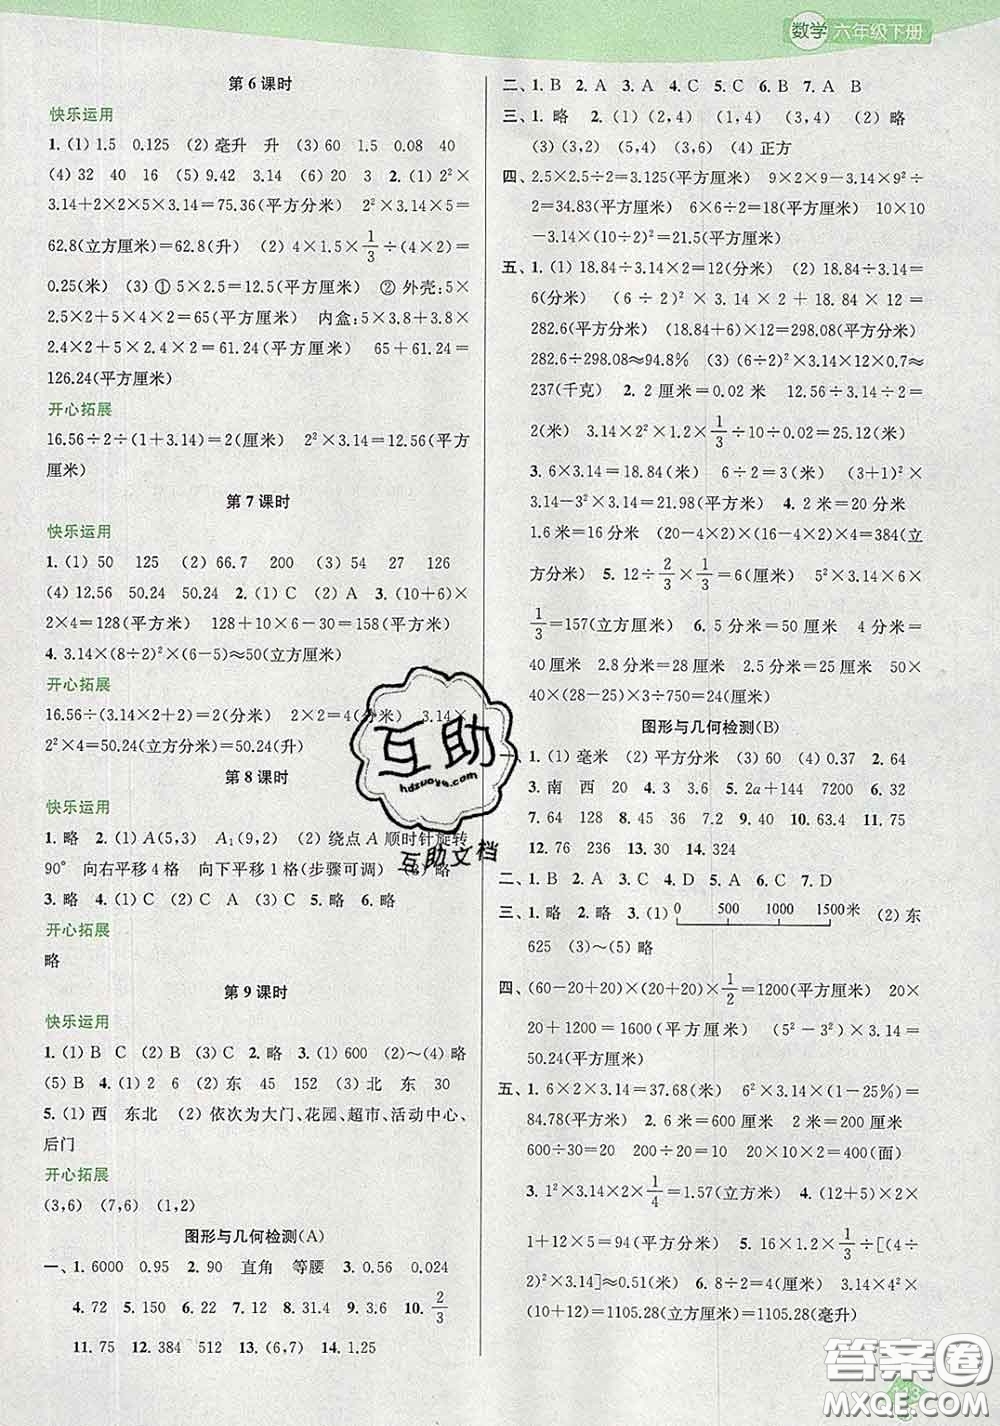 数学 六年级下册
第 6 课时
快乐运用
1. (1) 1.5  0.125  (2) 毫升  升  (3) 60  1.5  0.08  40
(4) 32  40  16  (5) 9.42  3.14  (6) 20  3  2. (1) 2²×
3.14+2×2×5×3.14=75.36(平方分米)  2²×3.14×5=
62.8(立方厘米)=62.8(升)  (2) 4×1.5×1/3÷(4×2)=
0.25(米)  (3) ① 5×2.5=12.5(平方厘米)  ② 外壳:5×
2.5×2+5×4×2=65(平方厘米)  内盒:5×3.8+3.8×
2.4×2+5×2.4×2=61.24(平方厘米)  65+61.24=
126.24(平方厘米)
开心拓展
16.56÷2÷(1+3.14)=2(厘米)  2²×3.14=12.56(平方
厘米)
第 7 课时
快乐运用
1. (1) 50  125  (2) 66.7  200  (3) 54  27  126
(4) 12.56  50.24  2. (1) C  (2) A  3. (10+6)×
2×4=128(平方米)  128+10×6-30=158(平方米)
4. 3.14×(8÷2)²×(6-5)≈50(立方厘米)
开心拓展
16.56÷(3.14×2+2)=2(分米)  2×2=4(分米)  3.14×
2²×4=50.24(立方分米)=50.24(升)
第 8 课时
快乐运用
1. 略  2. (1) A(5,3)  A₁(9,2)  (2) 绕点 A 顺时针旋转
90°  向右平移 4 格  向下平移 1 格(步骤可调)  (3) 略
3. 略  4. (1) C  (2) C  A  (3) C  5. 略  6. 略
开心拓展
略
第 9 课时
快乐运用
1. (1) B  C  (2) B  (3) C  2. 略  3. (1) 600  (2)~(4) 略
(5) B  4. (1) 2  6  (2) 东  45  152  (3) 北  东  30
5. (1) 西  东北  (2) 依次为大门、花园、超市、活动中心、
后门
开心拓展
(3,6)  (7,6)  (1,2)
图形与几何检测(A)
一、1. 6000  0.95  2. 90  直角  等腰  3. 0.56  0.024
4. 72  5. 150  6. 22  7. 12  8. 31.4  9. 3.6  10. 2/3
11. 75  12. 384  512  13. (6,7)  14. 1.25
二、1. B  2. A  3. A  4. C  5. C  6. B  7. A  B
三、1. 略  2. (1) (2,4)  (1,4)  (3,4)  (2) 略
(3) (3,2)  (5,4)  (3,6)  (4) 正方
四、2.5×2.5÷2=3.125(平方厘米)  9×2×9-3.14×9²÷
2=34.83(平方厘米)  6×6÷2=18(平方厘米)  10×10
-3.14×(10÷2)²=21.5(平方厘米)
五、1. (1) 18.84÷3.14×2=12(分米)  (2) 18.84÷3.14=
6(分米)  (6÷2)²×3.14×2+18.84×12=
282.6(平方分米)  (18.84+6)×12=298.08(平方分米)
282.6÷298.08≈94.8%  (3) (6÷2)²×3.14×12×0.7≈
237(千克)  2. 2 厘米=0.02 米  12.56÷3.14÷2=
2(米)  3.14×2²×1.2×1/3÷10÷0.02=25.12(米)
3. 6×3.14=18.84(米)  6÷2=3(米)  (3+1)²×
3.14-3²×3.14=21.98(平方米)  4. 2 米=20 分米
1.6 米=16 分米  (20-4×2)×(16-4×2)×4=384(立
方分米)  5. 12÷2/3×1/3=6(厘米)  5²×3.14×6×
1/3=157(立方厘米)  6. 5 分米=50 厘米  4 分米=
40 厘米  2.8 分米=28 厘米  2.5 分米=25 厘米  50×
40×(28-25)×3÷750=24(厘米)
图形与几何检测(B)
一、1. (1) 毫米  (2) 平方分米  (3) 60  (4) 0.37  2. 64
3. 南  西  20  4. 3  3.6  5. 2a+144  7200  6. 32
7. 64  128  8. 45  36  9. 7.2  10. 13.4  11. 75
12. 76  236  13. 30  14. 324
二、1. B  2. B  3. C  4. D  5. A  6. C  7. D
三、1. 略  2. 略  3. (1) 0  500  1000  1500米  (2) 东
625  (3)~(5) 略
四、(60-20+20)×(20+20)×1/2=1200(平方厘米)  20×
20+1200=1600(平方厘米)  (5²-3²)×3.14=
50.24(平方厘米)
五、1. 6×2×3.14=37.68(米)  6²×3.14×(1-25%)=
84.78(平方米)  2. 6 米=600 厘米  2 米=200 厘米
600÷30=20(面)  20×20=400(面)
3. 1²×3.14×2×1/4=1.57(立方米)  4. (12+5)×2×
1+12×5=94(平方分米)  5. 16×1.2×1/3÷[(4÷
2)²×3.14]≈0.51(米)  6. 8÷2=4(厘米)  3.14×4²×
(10+12)=1105.28(立方厘米)=1105.28(毫升)
互助
hdzuoye.com
互助文档
答案圈
MXQE.COM